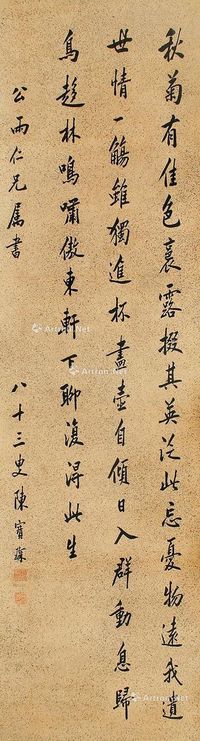 秋菊有佳色裛露掇其英泛此忘憂物遠我遺
世情一觴雖獨進杯盡壺自傾日入群動息歸
鳥趨林鳴嘯傲東軒下聊復得此生
公雨仁兄屬書
八十三叟陳寶琛